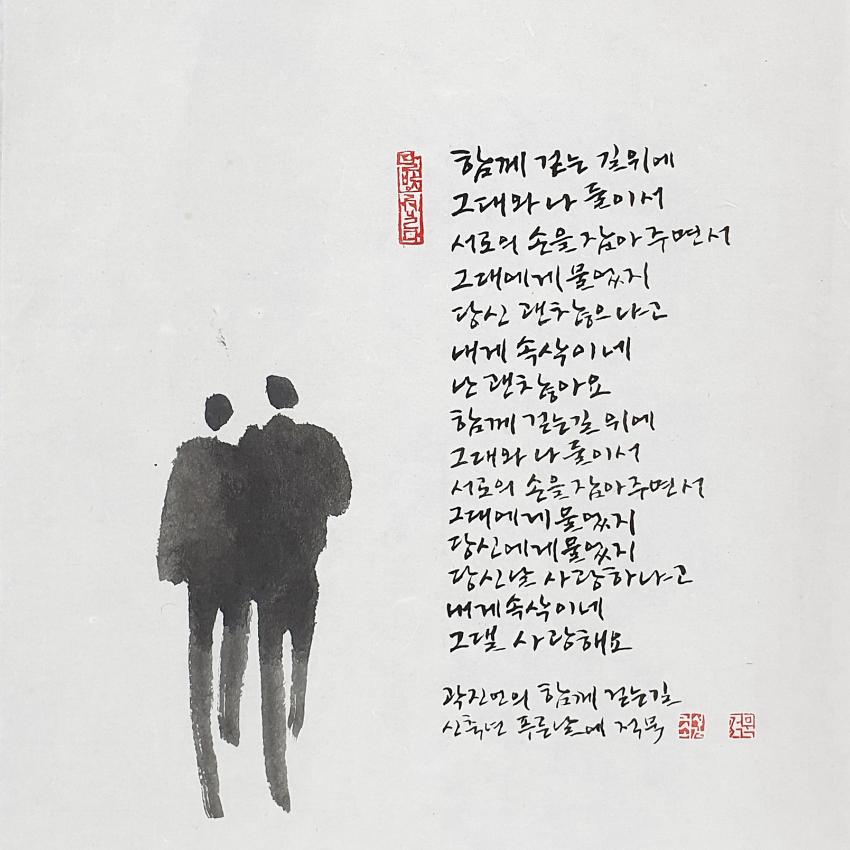 함께 걷는 길위에
그대와 나 둘이서
서로의 손을 잡아주면서
그대에게 물었지
당신 괜찮으냐고
내게 속삭이네
난 괜찮아요
함께 걷는길 위에
그대와 나 둘이서
서로의 손을 잡아주면서
그대에게 물었지
당신에게 물었지
당신날 사랑하냐고
내게 속삭이네
그댈 사랑해요
곽진언의 함께 걷는길
신축년 푸른날에 적묵